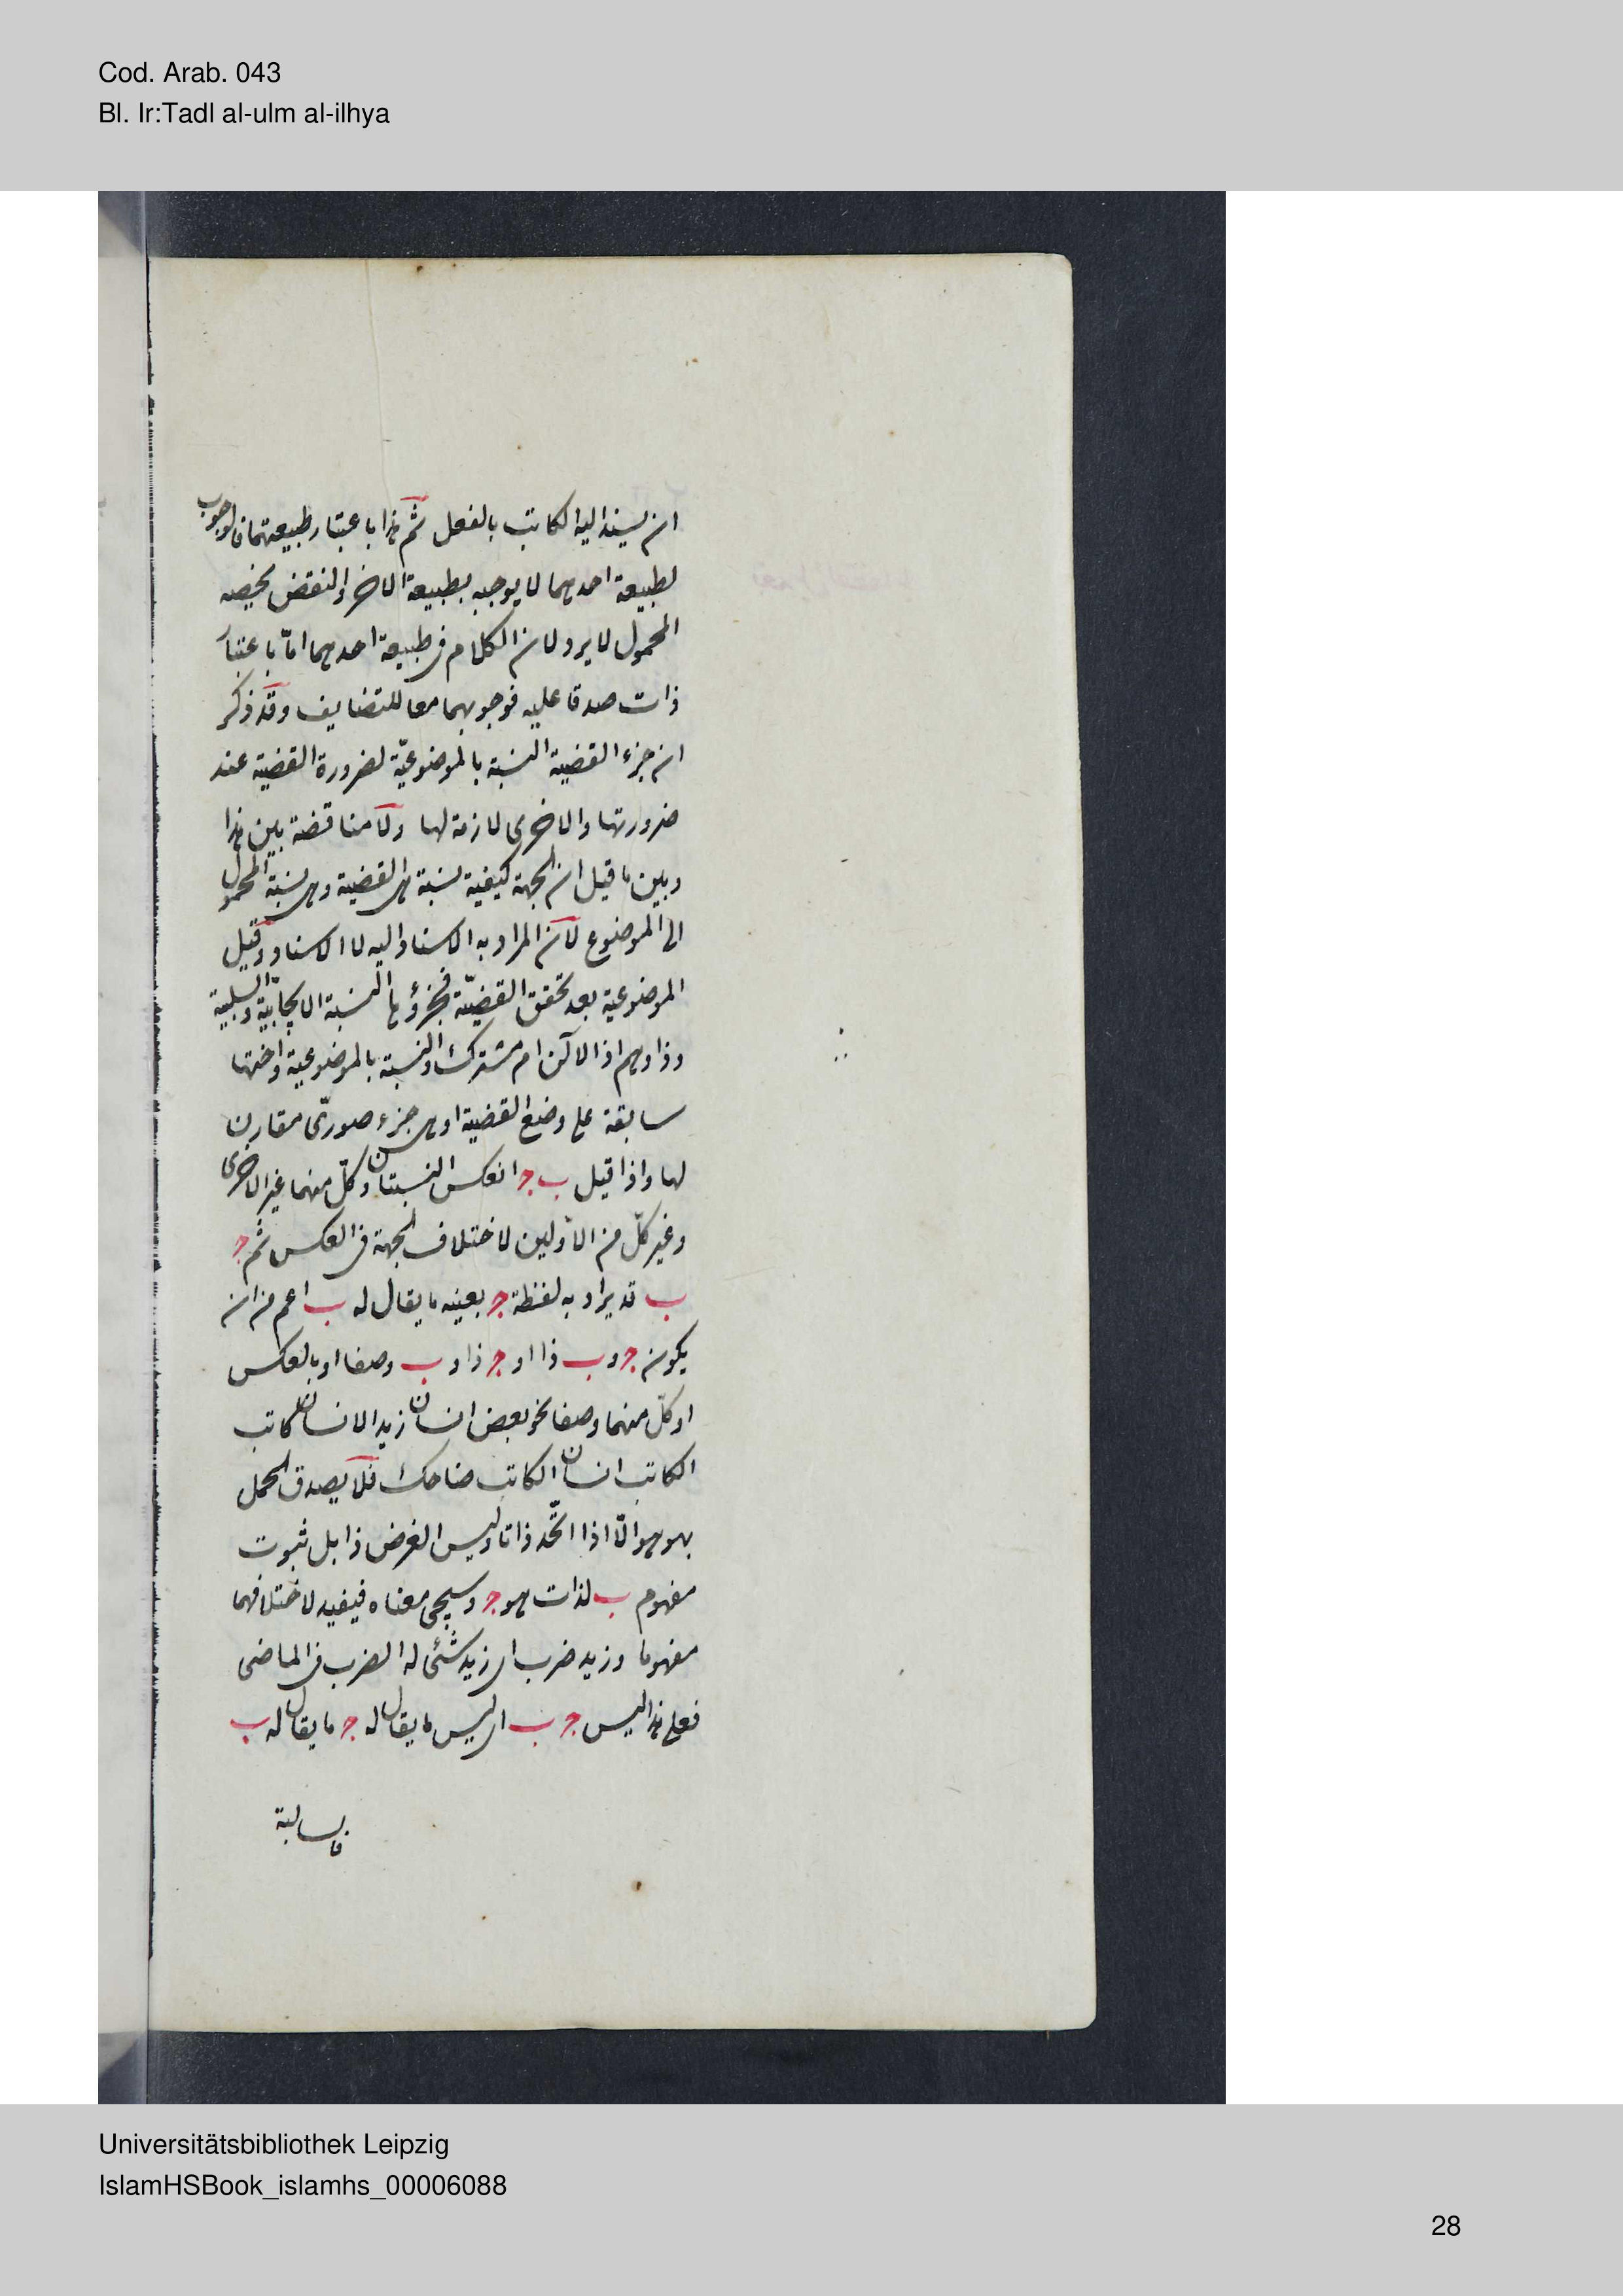 Cod. Arab. 043
Bl. Ir:Tadl al-ulm al-ilhya
ان يسند اليه الكاتب بالفعل ثم هذا باعتبار طبيعتهما فالوجوب
لطبيعة احدهما لا يوجبه بطبيعة الاخر والنقض يخصه
المحمول لا يرد لان الكلام فى طبيعة احدهما امّا باعتبار
ذات صدقا عليه فوجوبهما معا للتضايف وقد ذكر
ان جزء القضية النسبة بالموضوعيّة لضرورة القضية عند
ضرورتها والاخرى لازمة لها ولا مناقضة بين هذا
وبين ما قيل ان الجهة كيفية نسبة هى القضية وهى نسبة المحمول
الى الموضوع لان المراد به الاسناد اليه لا الاسناد وقيل
الموضوعية بعد تحقق القضيّة فجزؤها النسبة الايجابيّة والسلبية
وذا وهم اذ الالتزام مشترك والنسبة بالموضوعية واختها
سابقة على وضع القضية او هى جزء صورىّ مقارن
لها واذا قيل ب ج انعكس النسبتان وكلّ منهما غير الاخرى
وغير كلّ من الاولين لاختلاف الجهة فى العكس ثم ج
ب قد يراد به لفظة ج بعينه ما يقال له ب اعم من ان
يكون ج و ب ذاا او ج ذا و ب وصفا او بالعكس
او كلّ منهما وصفا نحو بعض انسان زيد الانسان كاتب
الكاتب انسان الكاتب ضاحك فلا يصدق الحمل
بهو هو الّا اذا اتّحد ذاتا وليس الغرض ذا بل ثبوت
مفهوم ب لذات هو ج وسيجئ معناه فيفيد لاختلافهما
مفهوما وزيد ضرب اى زيد شئ له الضرب فى الماضى
فعلى هذا ليس ج ب اى ليس ما يقال له ج ما يقال له ب
فالسالبة
Universitätsbibliothek Leipzig
IslamHSBook_islamhs_00006088
28